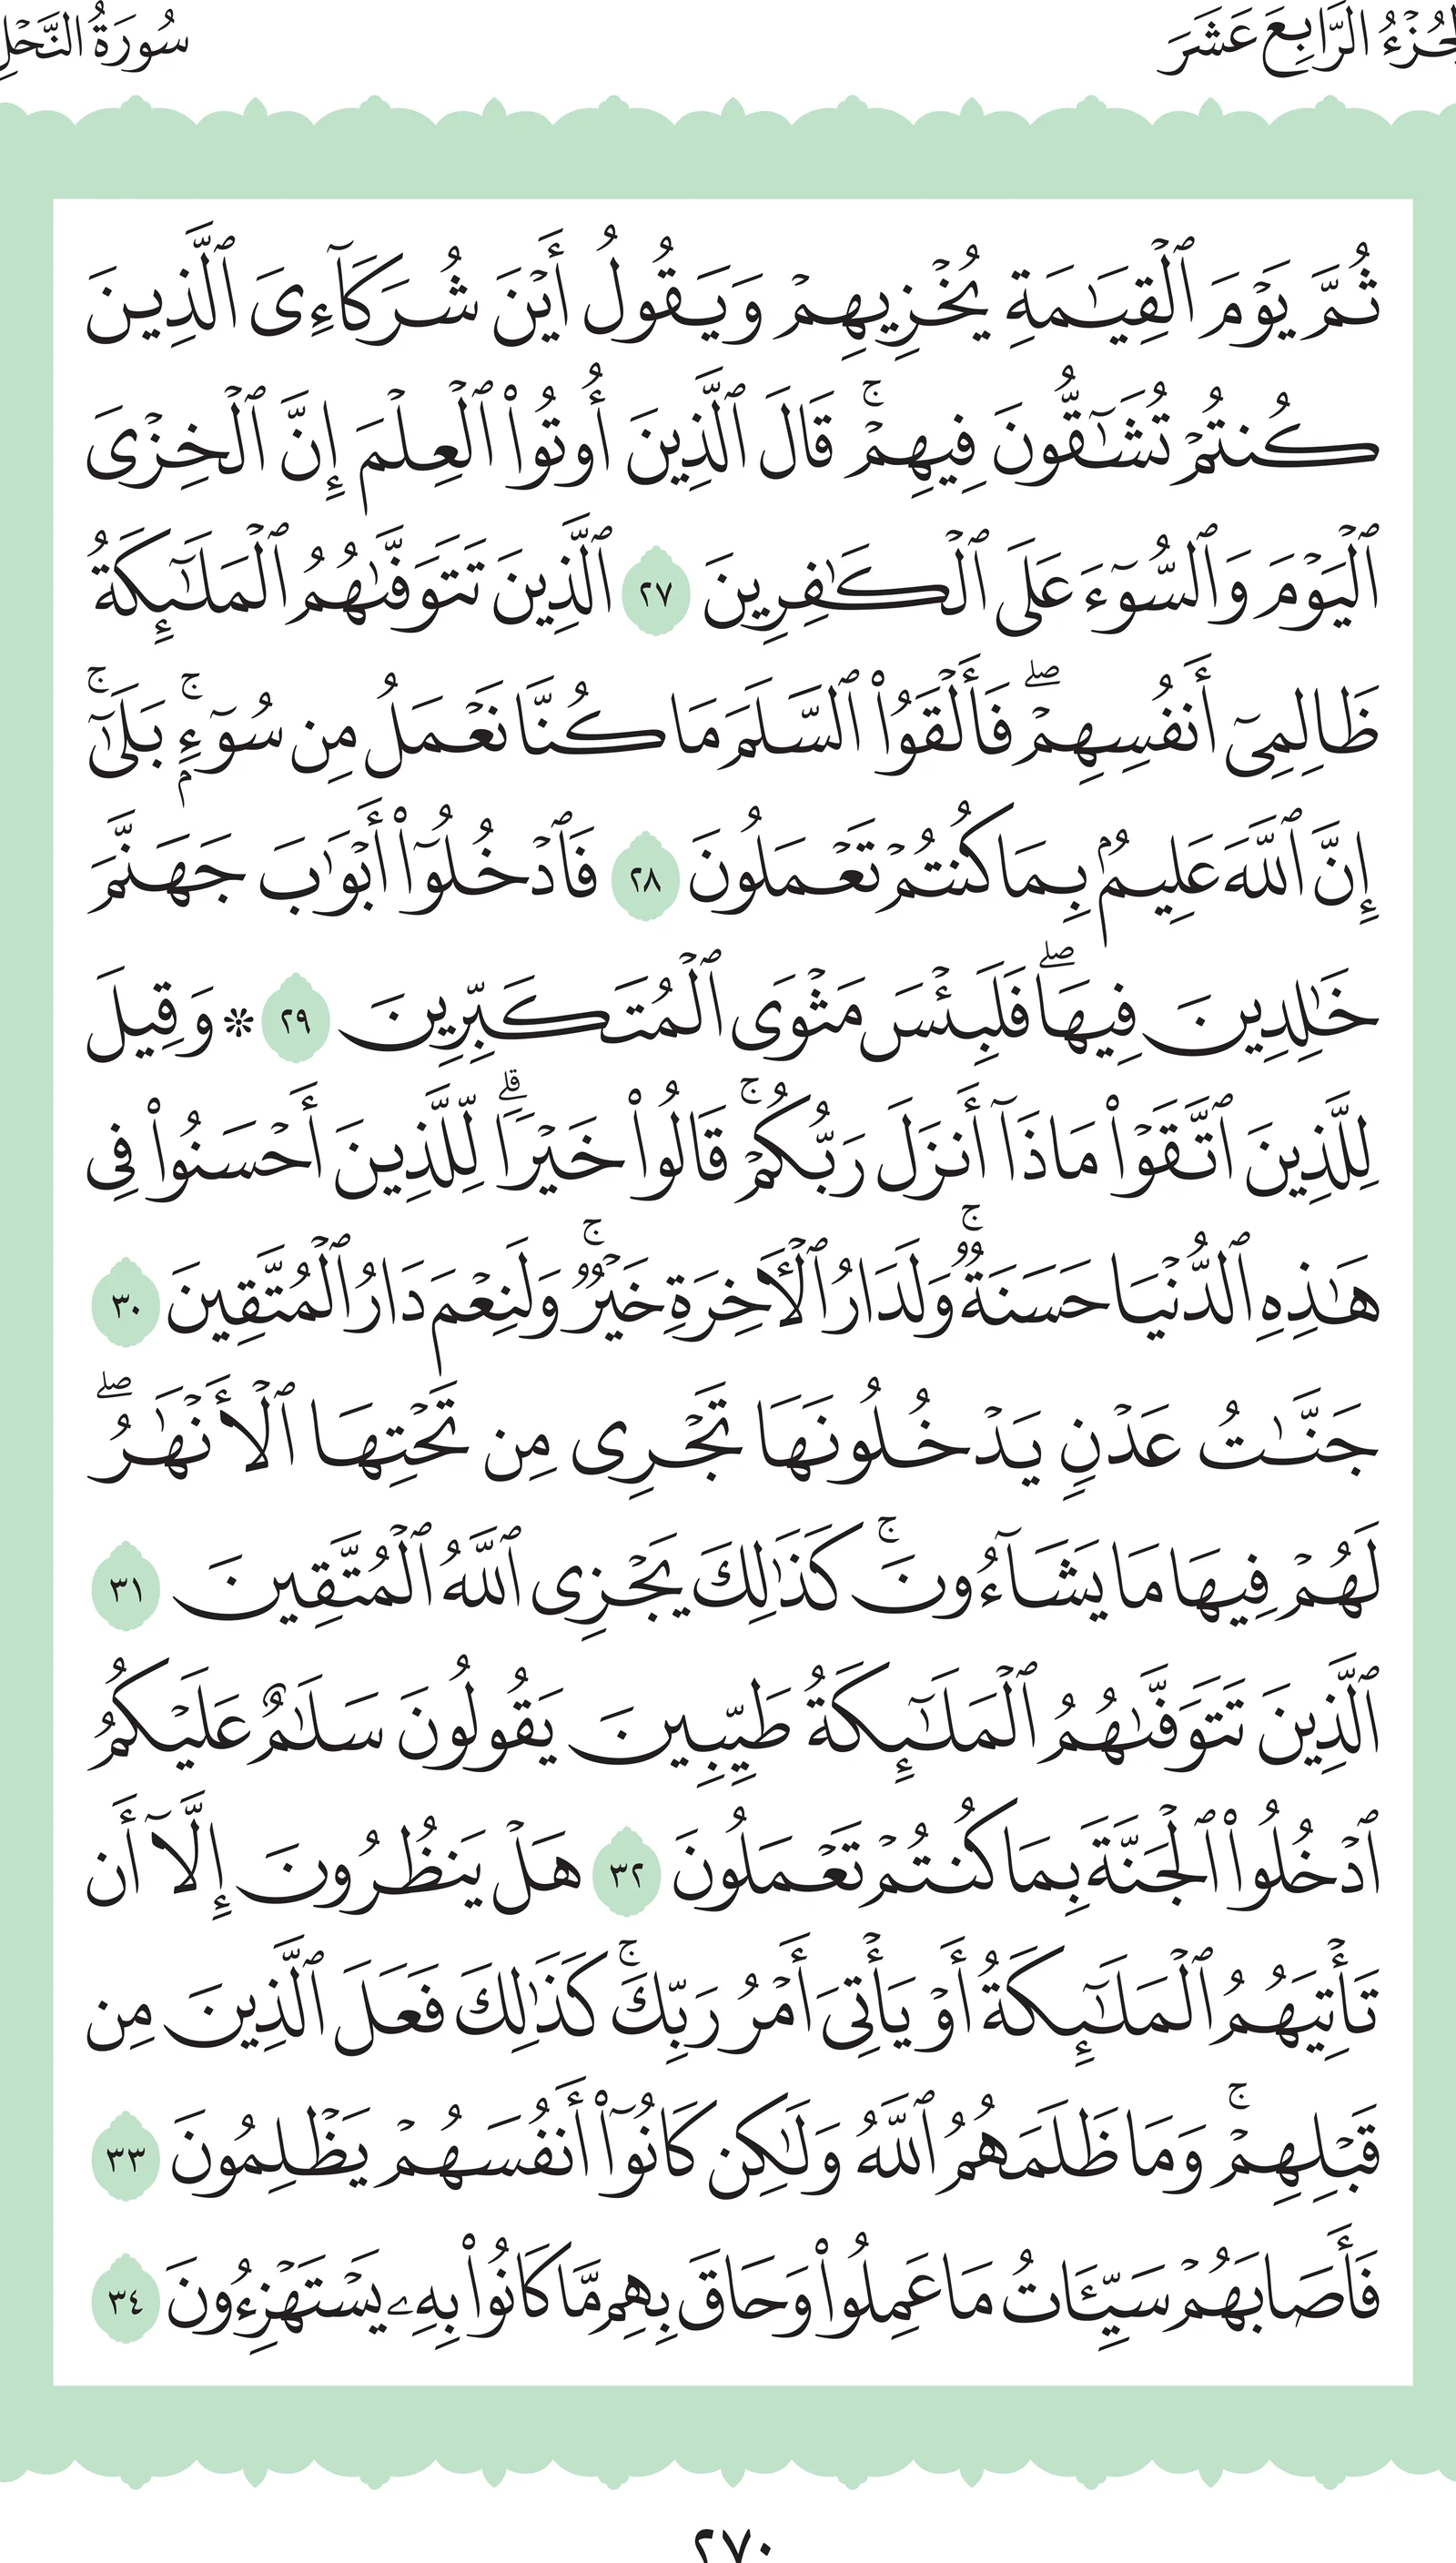 الجُزْءُ الرَّابِعَ عَشَرَ
سُورَةُ النَّحْلِ
ثُمَّ يَوْمَ ٱلْقِيَٰمَةِ يُخْزِيهِمْ وَيَقُولُ أَيْنَ شُرَكَآءِىَ ٱلَّذِينَ
كُنتُمْ تُشَٰٓقُّونَ فِيهِمْ ۚ قَالَ ٱلَّذِينَ أُوتُوا۟ ٱلْعِلْمَ إِنَّ ٱلْخِزْىَ
ٱلْيَوْمَ وَٱلسُّوٓءَ عَلَى ٱلْكَٰفِرِينَ ٢٧ ٱلَّذِينَ تَتَوَفَّىٰهُمُ ٱلْمَلَٰٓئِكَةُ
ظَالِمِىٓ أَنفُسِهِمْ ۖ فَأَلْقَوُا۟ ٱلسَّلَمَ مَا كُنَّا نَعْمَلُ مِن سُوٓءٍۭ ۚ بَلَىٰٓ ۚ
إِنَّ ٱللَّهَ عَلِيمٌۢ بِمَا كُنتُمْ تَعْمَلُونَ ٢٨ فَٱدْخُلُوٓا۟ أَبْوَٰبَ جَهَنَّمَ
خَٰلِدِينَ فِيهَا ۖ فَلَبِئْسَ مَثْوَى ٱلْمُتَكَبِّرِينَ ٢٩ * وَقِيلَ
لِلَّذِينَ ٱتَّقَوْا۟ مَاذَآ أَنزَلَ رَبُّكُمْ ۚ قَالُوا۟ خَيْرًا ۗ لِّلَّذِينَ أَحْسَنُوا۟ فِى
هَٰذِهِ ٱلدُّنْيَا حَسَنَةٌ ۚ وَلَدَارُ ٱلْـَٔاخِرَةِ خَيْرٌ ۚ وَلَنِعْمَ دَارُ ٱلْمُتَّقِينَ ٣٠
جَنَّٰتُ عَدْنٍ يَدْخُلُونَهَا تَجْرِى مِن تَحْتِهَا ٱلْأَنْهَٰرُ ۖ
لَهُمْ فِيهَا مَا يَشَآءُونَ ۚ كَذَٰلِكَ يَجْزِى ٱللَّهُ ٱلْمُتَّقِينَ ٣١
ٱلَّذِينَ تَتَوَفَّىٰهُمُ ٱلْمَلَٰٓئِكَةُ طَيِّبِينَ يَقُولُونَ سَلَٰمٌ عَلَيْكُمُ
ٱدْخُلُوا۟ ٱلْجَنَّةَ بِمَا كُنتُمْ تَعْمَلُونَ ٣٢ هَلْ يَنظُرُونَ إِلَّآ أَن
تَأْتِيَهُمُ ٱلْمَلَٰٓئِكَةُ أَوْ يَأْتِىَ أَمْرُ رَبِّكَ ۚ كَذَٰلِكَ فَعَلَ ٱلَّذِينَ مِن
قَبْلِهِمْ ۚ وَمَا ظَلَمَهُمُ ٱللَّهُ وَلَٰكِن كَانُوٓا۟ أَنفُسَهُمْ يَظْلِمُونَ ٣٣
فَأَصَابَهُمْ سَيِّـَٔاتُ مَا عَمِلُوا۟ وَحَاقَ بِهِم مَّا كَانُوا۟ بِهِۦ يَسْتَهْزِءُونَ ٣٤
٢٧٠